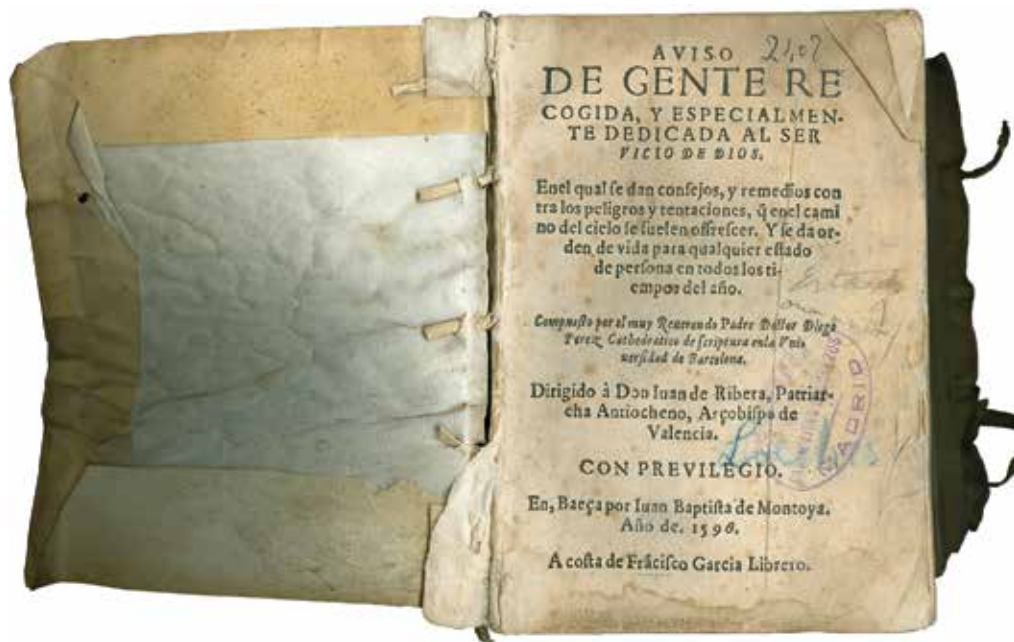 AVISO
DE GENTE RE
COGIDA, Y ESPECIALMEN-
TE DEDICADA AL SER
VICIO DE DIOS.
Enel qual ſe dan conſejos, y remedios con
tra los peligros y tentaciones, q̃ enel cami
no del cielo ſe ſuelen offreſcer. Y ſe da or-
den de vida para qualquier eſtado
de perſona en todos los ti-
empos del año.
Compueſto por el muy Reuerendo Padre Doctor Diego
Perez, Cathedratico de ſcriptura enla Vni
uerſidad de Barcelona.
Dirigido à Don Iuan de Ribera, Patriar-
cha Antiocheno, Arçobiſpo de
Valencia.
MADRID
CON PREVILEGIO.
En, Baeça por Iuan Baptiſta de Montoya.
Año de. 1596.
A coſta de Frãciſco Garcia Librero.